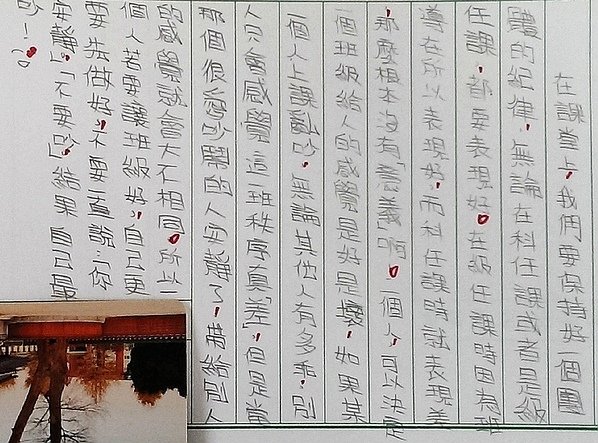 在課堂上,我們要保持好一個團
體的紀律,無論在科任課或者是級
任課,都要表現好。在級任課時因為班
導在所以表現好,而科任課時就表現差
,那麼根本沒有「意義」啊。一個人,可以決定
一個班級給人的感覺是好是壞,如果某
一個人上課亂吵,無論其他人有多乖,別
人只會感覺這一班秩序真「差」,但是當
那個很愛吵鬧的人安靜了,帶給別人
的感覺就會大不相同。所以一
個人若要讓班級好,自己更
要先做好,不要一直說:你
安靜,「不要吵」結果自己最
吵!。